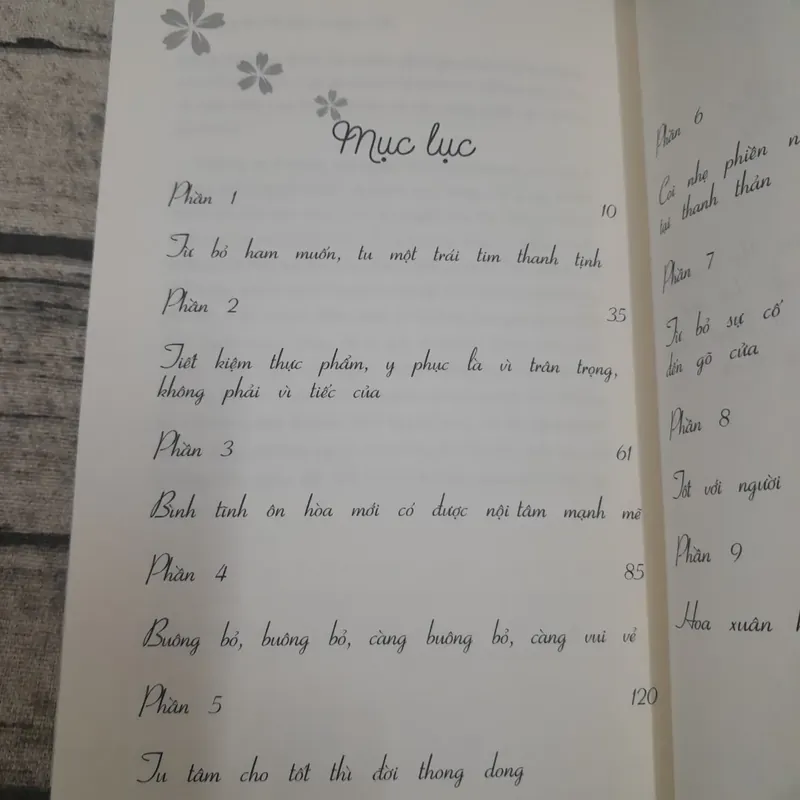 Mục lục
Phần 1
10
Từ bỏ ham muốn, tu một trái tim thanh tịnh
Phần 2
35
Tiết kiệm thực phẩm, y phục là vì trân trọng,
không phải vì tiếc của
Phần 3
61
Bình tĩnh ôn hòa mới có được nội tâm mạnh mẽ
Phần 4
85
Buông bỏ, buông bỏ, càng buông bỏ, càng vui vẻ
Phần 5
120
Tu tâm cho tốt thì đời thong dong
Phần 6
Coi nhẹ phiền
tại thanh thản
Phần 7
Từ bỏ sự cố
đến gõ cửa
Phần 8
Tốt với người
Phần 9
Hoa xuân